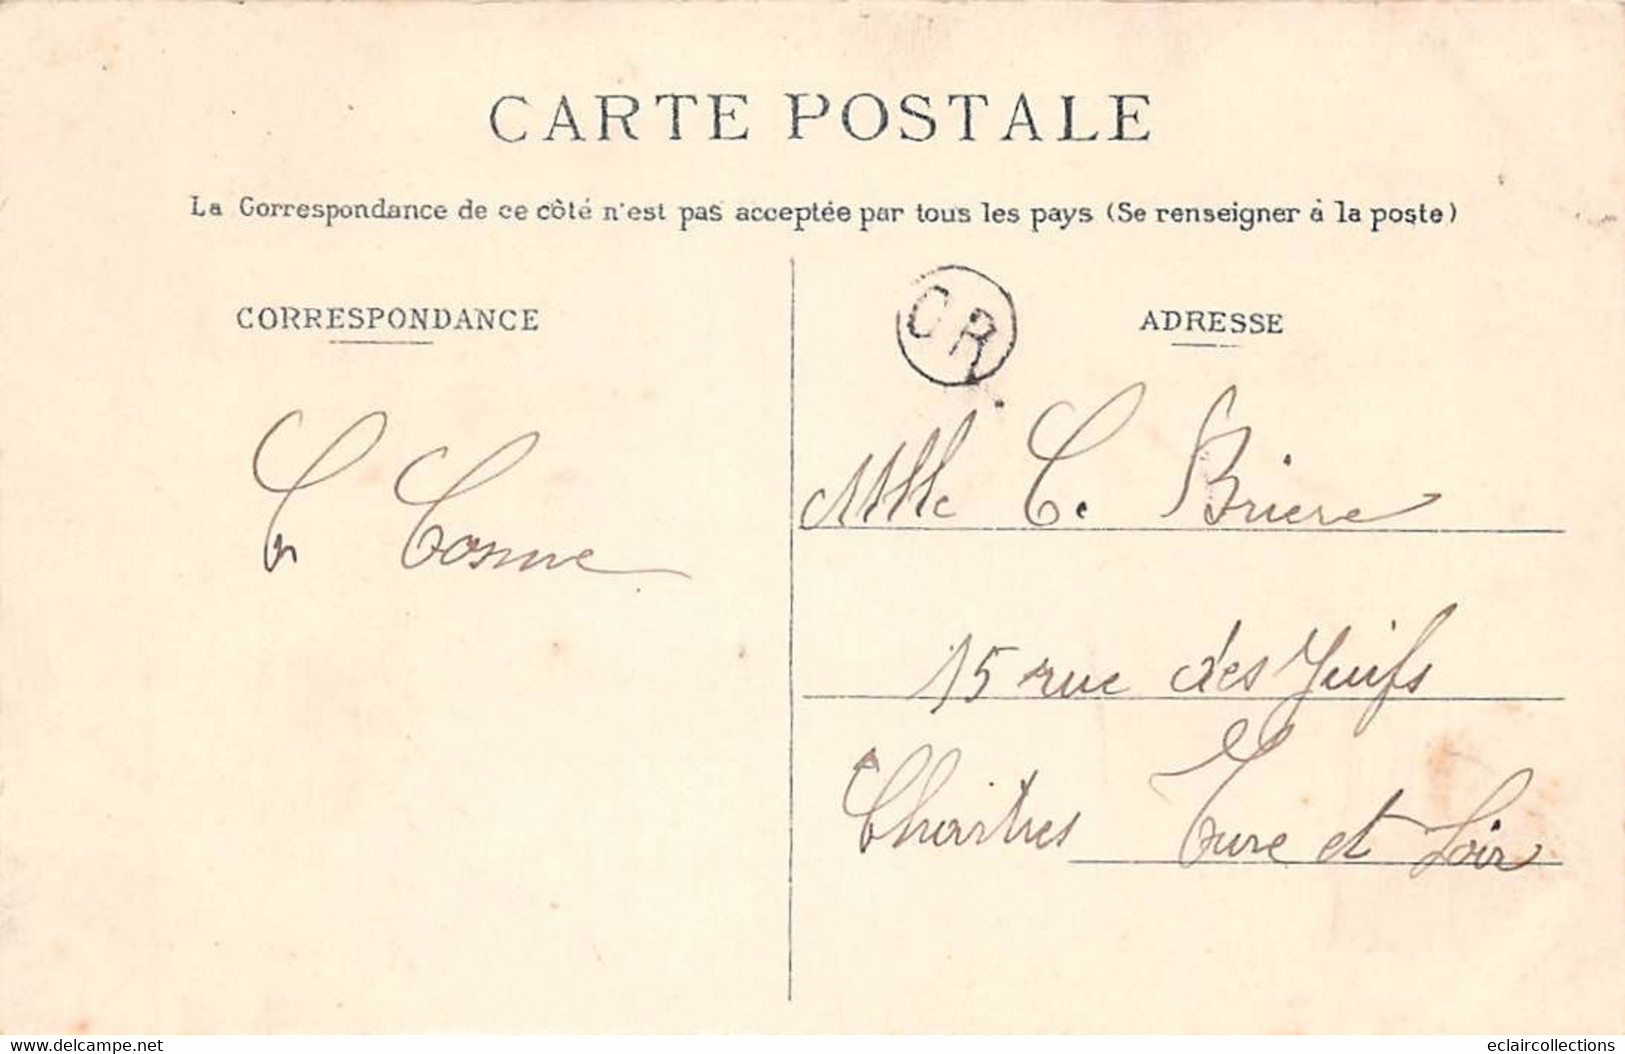 CARTE POSTALE
La Correspondance de ce côté n'est pas acceptée par tous les pays (Se renseigner à la poste)
CORRESPONDANCE
Cosme
OR
ADRESSE
Mlle C. Briere
15 rue des Juifs
Chartres Eure et Loir
www.delcampe.net
eclaircollections